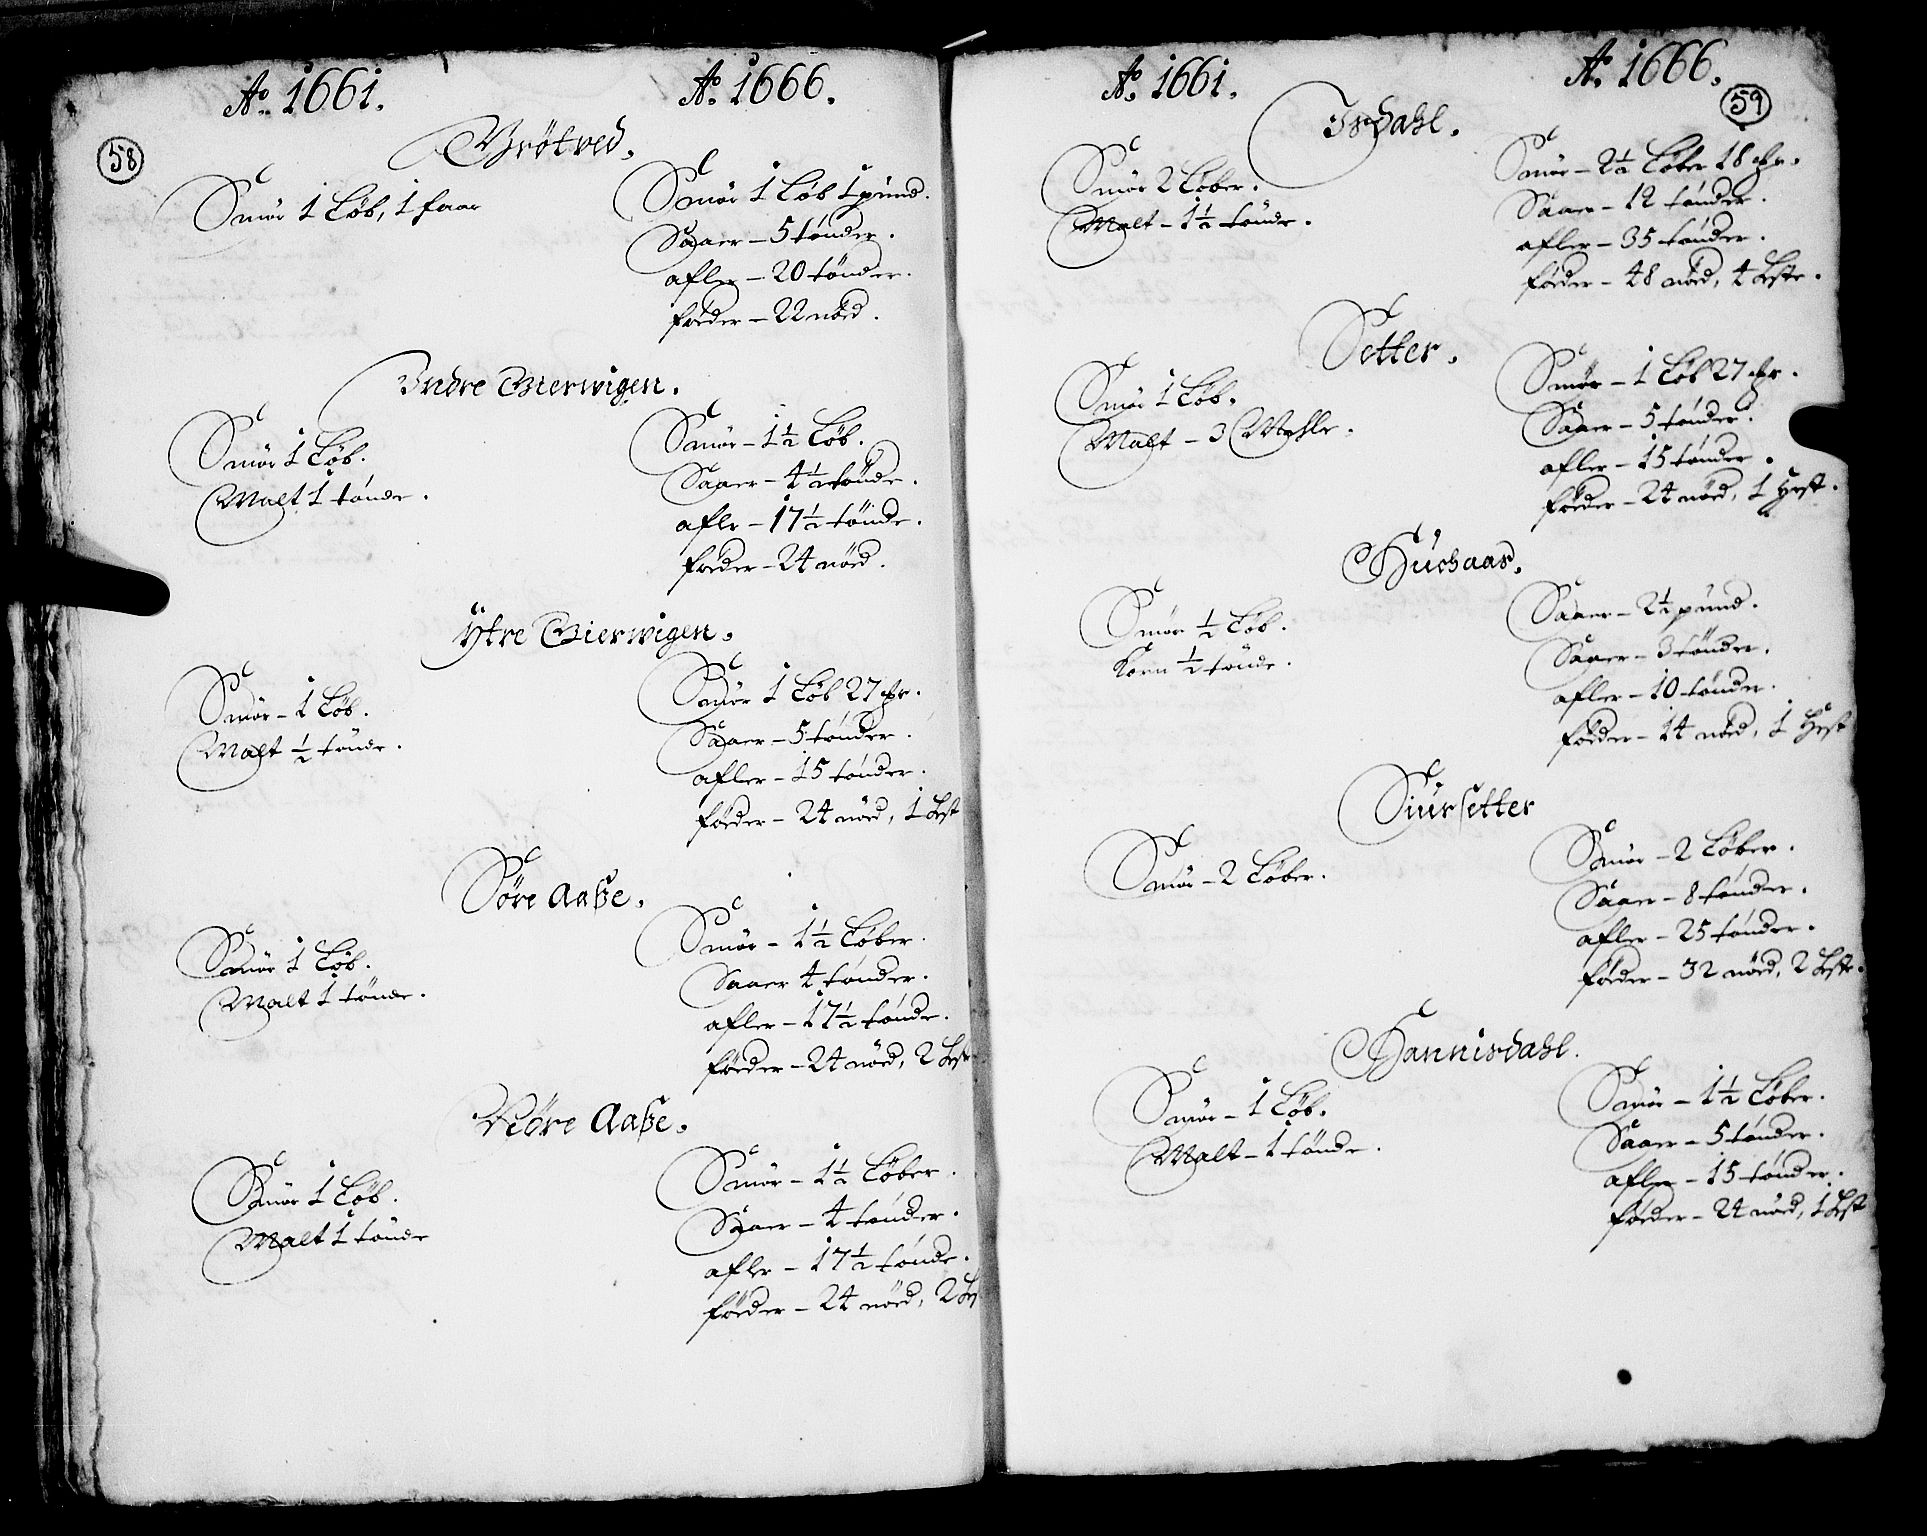 58
Ao. 1661.
Ao. 1666.
Brötved.
Smör 1 Löb, 1 faar
Smör 1 Löb 1 pund.
Saaer – 5 tönder.
afler – 20 tönder.
föeder – 22 nöd.
Indre Bierwigen.
Smör 1 Löb.
Malt 1 tönde.
Smör – 1½ Löb.
Saaer – 4½ tönde.
afler – 17½ tönde.
föeder – 24 nöd.
Ytre Bierwigen.
Smör – 1 Löb.
Malt ½ tönde.
Smör 1 Löb 27 mkr.
Saaer – 5 tönder.
afler – 15 tönder.
föeder – 24 nöd, 1 Hest
Söre Aaße.
Smör 1 Löb.
Malt 1 tönde.
Smör – 1½ Löber.
Saaer 4 tönder.
afler – 17½ tönde.
föeder – 24 nöd, 2 Hest
Nöre Aaße.
Smör 1 Löb.
Malt 1 tönde
Smör – 1½ Löber.
Saaer – 4 tönder.
afler – 17½ tönde.
föeder – 24 nöd, 2 Hes
59
Ao. 1661.
Ao. 1666.
Isdahl.
Smör 2 Löber.
Malt – 1½ tönde.
Smör – 2½ Löber 18 mkr.
Saaer – 12 tönder.
afler – 35 tönder.
föeder – 48 nöd, 4 Heste.
Setter.
Smör 1 Löb.
Malt – 3 Mehler.
Smör – 1 Löb 27 mkr.
Saaer – 5 tönder.
afler – 15 tönder.
föeder – 24 nöd, 1 Hest.
Smör ½ Löb.
Korn ½ tönde.
Saaer – 2½ pund.
Saaer – 3 tönder.
afler – 10 tönder.
föeder – 14 nöd, 1 Hest
Siursetter
Smör – 2 Löber.
Smör – 2 Löber.
Saaer – 8 tönder.
afler – 25 tönder.
föeder – 32 nöd, 2 Heste.
Hannisdahl.
Smör – 1 Löb.
Malt – 1 tönde.
Smör – 1½ Löber.
Saaer – 5 tönder.
afler – 15 tönder.
föeder – 24 nöd, 1 Hest